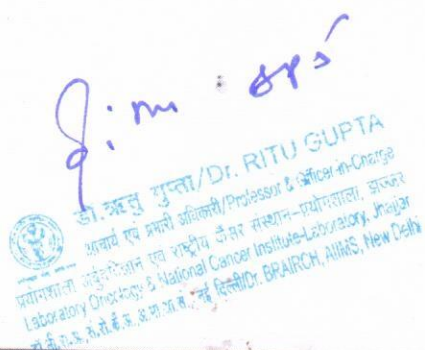 डॉ. ऋतु गुप्ता/Dr. RITU GUPTA
आचार्य एवं प्रभारी अधिकारी/Professor & Officer-in-Charge
प्रयोगशाला अर्बुदविज्ञान एवं राष्ट्रीय कैंसर संस्थान-प्रयोगशाला, झज्जर
Laboratory Oncology & National Cancer Institute-Laboratory, Jhajjar
नई दिल्ली/Dr. BRAIRCH, AIIMS, New Delhi